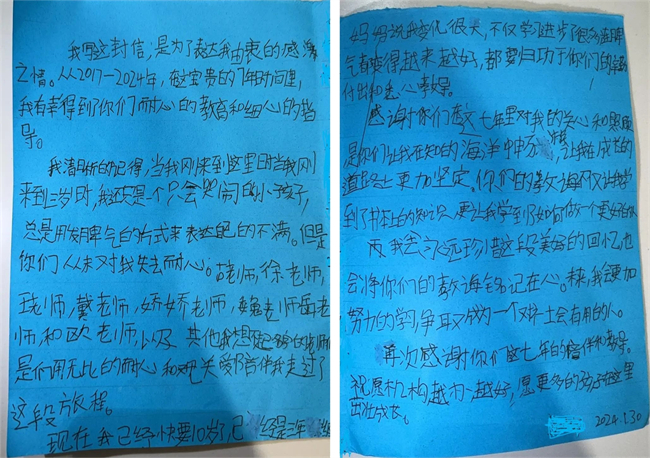 我写这封信，是为了表达我由衷的感激
之情。从2017-2024年，在这宝贵的7年时间里，
我有幸得到了你们耐心的教育和细心的指
导。
我清晰的记得，当我刚来到这里时当我刚
来到三岁时，我还只是一个只会哭闹的小孩子，
总是用发脾气的方式来表达自己的不满。但是
你们从未对我失去耐心。老师，徐老师，
老师，戴老师，娇娇老师，魏老师岳老
师和欧老师，以及其他我想不起名的老师们
是你们用无比的耐心和关爱陪伴我走过了
这段旅程。
现在我已经快要10岁了，已经是
妈妈说我变化很大，不仅学习进步了很多，脾
气也变得越来越好，都要归功于你们的辛勤
付出和悉心教导。
感谢你们这七年里对我的关心和照顾
是你们让我在知识的海洋中，让我在成长的
道路上更加坚定。你们的教诲不仅让我学
到了书本上的知识，更让我学到了如何做一个更好的
我会永远珍惜这段美好的回忆，也
会将你们的教诲铭记在心。未来，我会更加
努力的学，争取成为一个对社会有用的人。
再次感谢你们这七年的陪伴和教导。
祝愿机构越办越好，愿更多的孩子在这里
茁壮成长。
2024.1.30